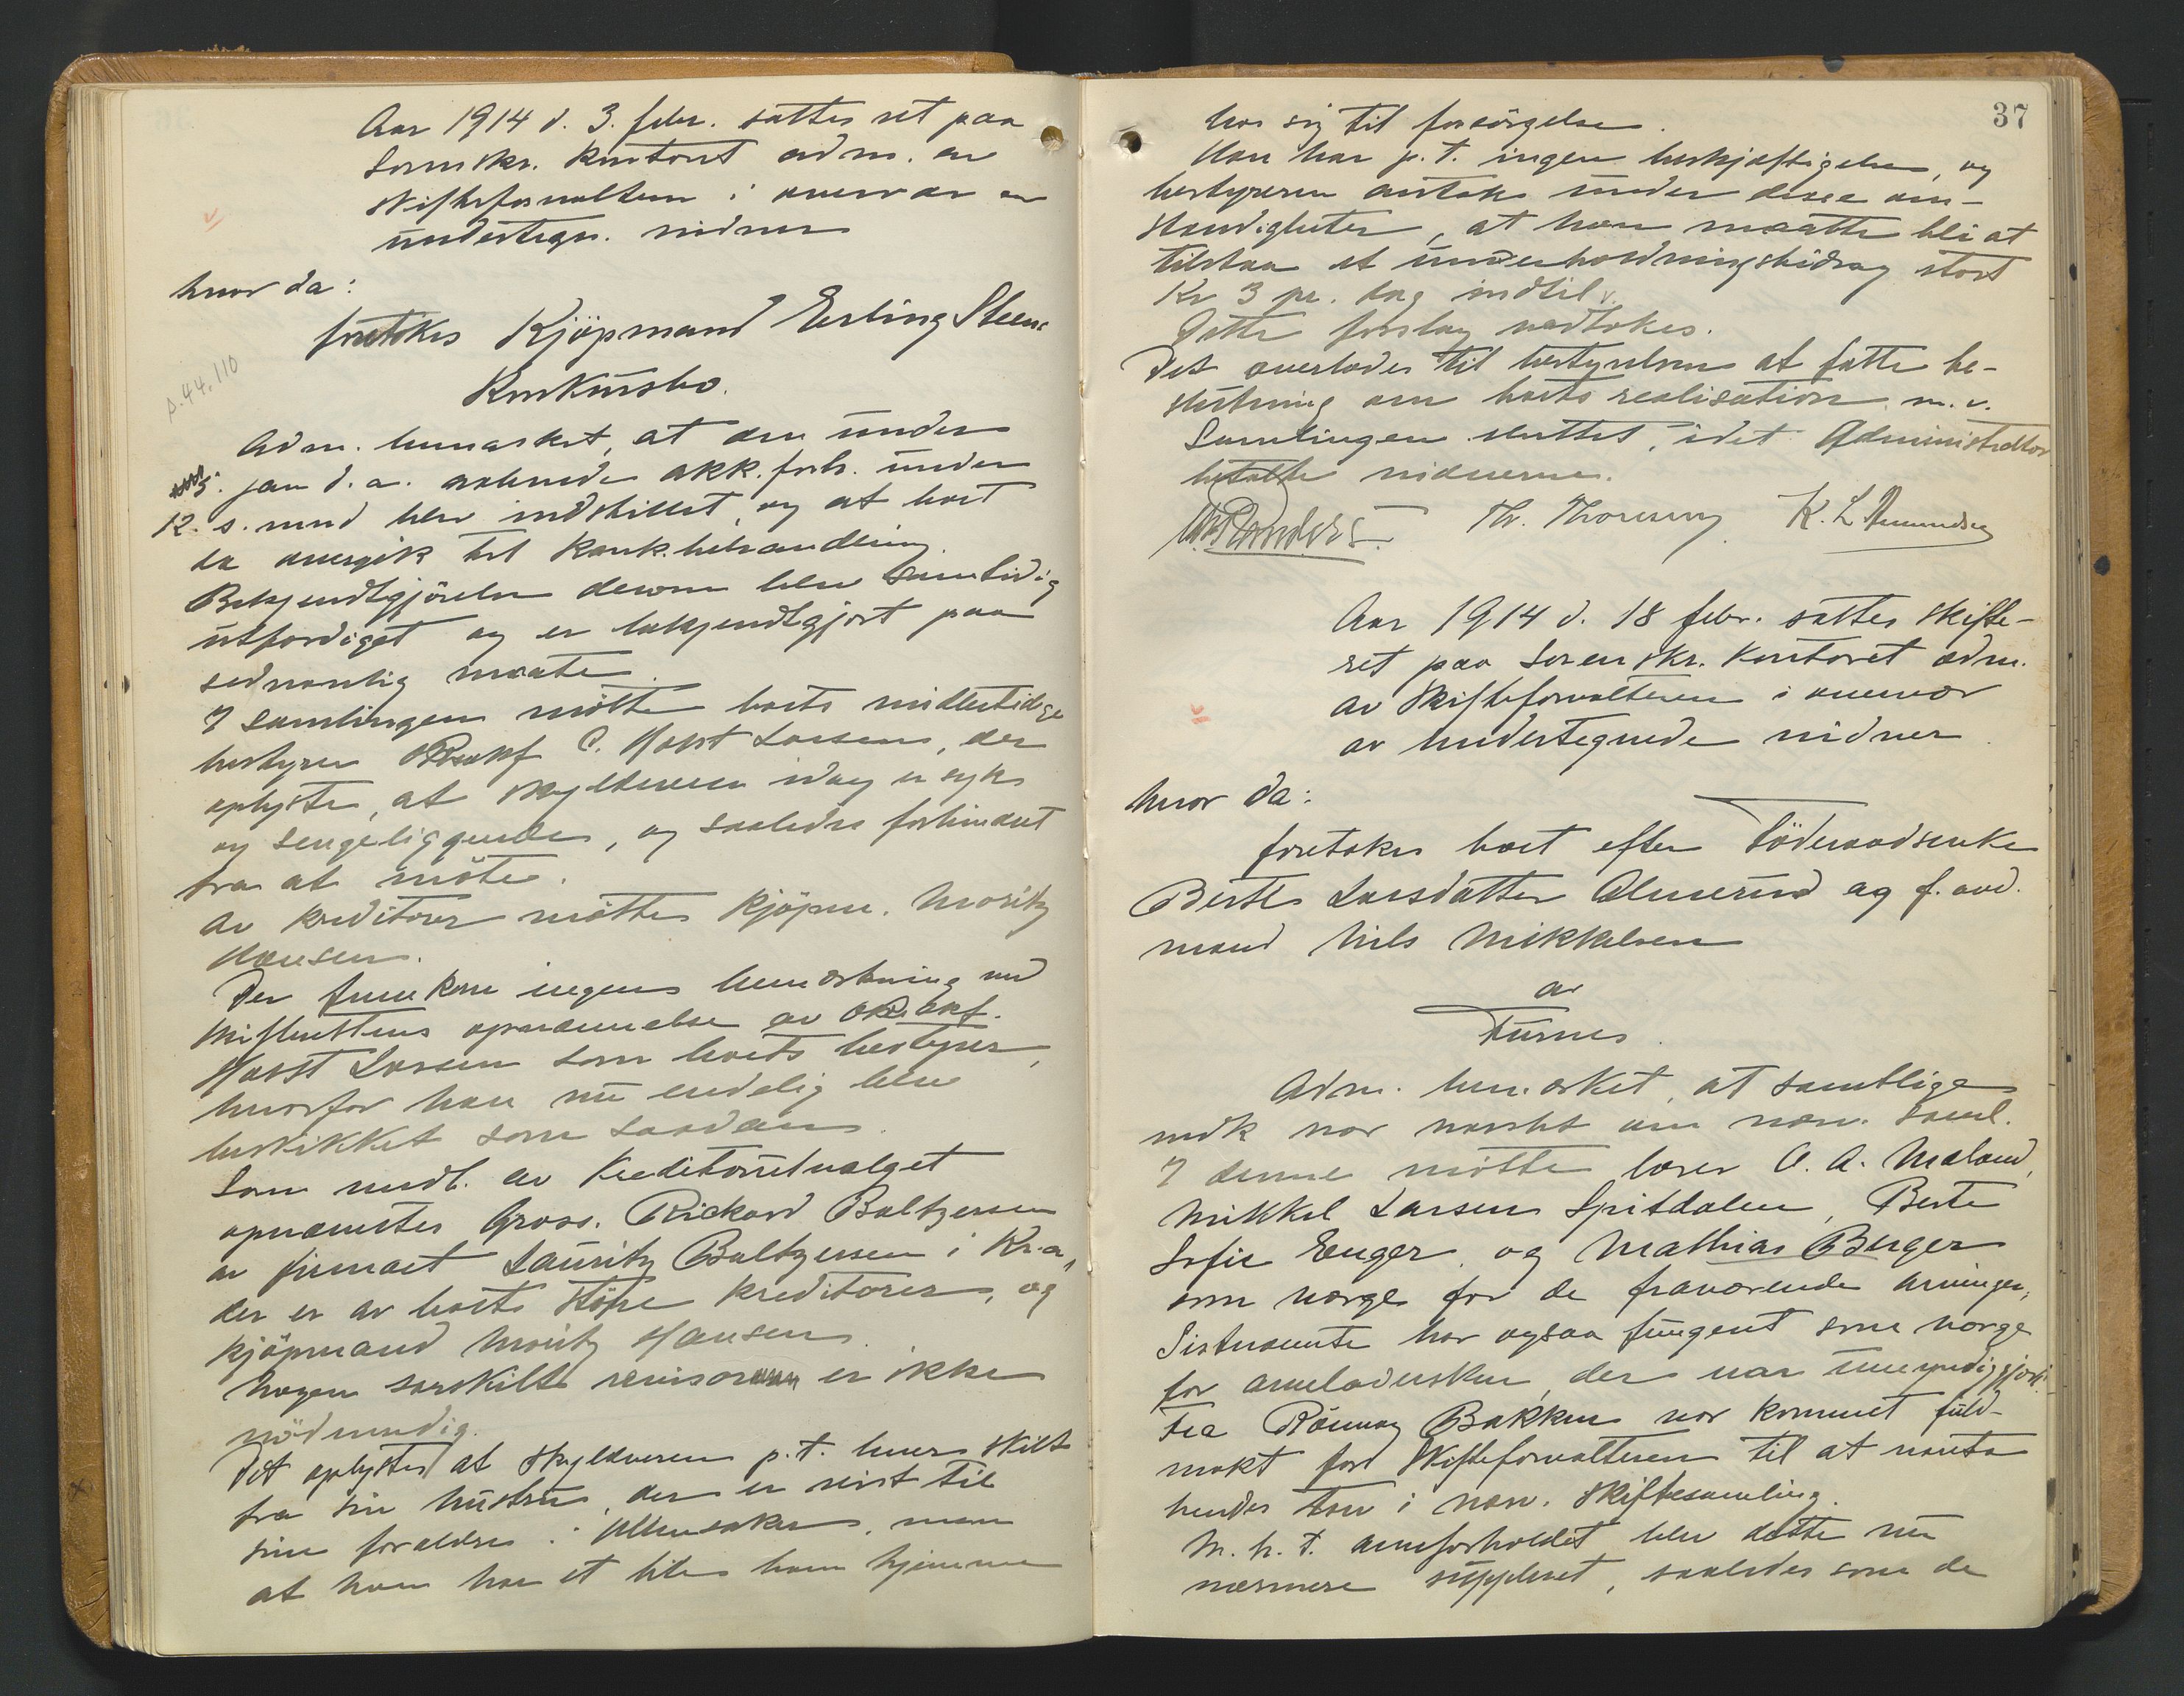 Aar 1914 d. 3. febr. sattes ret paa
Sorenskr. kontoret adm. av
skifteforvalteren i overvær av
undertegn. vidner
hvor da:
foretokes Kjöpmand Erling Steens
Konkursbo.
p.44.110
Adm. bemerket, at den under
5. jan d. a. aabnede akk.forh. under
12. s. mnd blev indstillet, og at boet
da overgik til konk.behandling.
Bekjendtgjörelse derom blev samtidig
utferdiget og er bekjendtgjort paa
sedvanlig maate.
I samlingen mötte boets midlertidige
bestyrer O.R.sakf C. Horst Larsen, der
oplyste, at skyldneren idag er syk
og sengeliggende, og saaledes forhindret
fra at möte.
Av kreditorer mötte kjöpm. Moritz
Hansen.
Der fremkom ingen bemerkning ved
skifterettens opnævnelse av O.R.sakf.
Horst Larsen som boets bestyrer,
hvorfor han nu endelig blev
beskikket som saadan.
Som medl. av Kreditorutvalget
opnævntes Gross. Rickard Baltzersen
av firmaet Lauritz Baltzersen i Kr.a,
der er av boets större kreditorer, og
kjöpmand Moritz Hansen.
Nogen særskilt revisor er ikke
nödvendig.
Det oplystes at skyldneren p.t. lever skilt
fra sin hustru, der er reist til
sine forældre i Ullensaker, men
at han har et litet barn hjemme
37
hos sig til forsörgelse.
Han har p.t. ingen beskjæftigelse, og
bestyreren antok under disse om-
stændigheter, at han maatte bli at
tilstaa et underholdningsbidrag stort
Kr 3 pr. dag indtil v.
Dette forslag vedtokes.
Det overlodes til bestyrelsen at fatte be-
slutning om boets realisation m.v.
Samlingen sluttet, idet Administrator
betalte vidnerne.
Th. Thoresen K. L. Amundsen
Aar 1914 d. 18 febr. sattes skifte-
ret paa Sorenskr. kontoret adm.
av Skifteforvalteren i overvær
av undertegnede vidner.
hvor da:
foretokes boet efter Föderaadsenke
Berte Larsdatter Almerud og f. aad.
mand Nils Mikkelsen
av
Furnes.
Adm. bemerket, at samtlige
vedk var varslet om nærv. saml.
I denne mötte lærer O. A. Mæland,
Mikkel Larsen Spitdalen, Berte
Sofie Enger og Mathias Berger
som verge for de fraværende arvinger.
Sistnævnte har ogsaa fungert som verge
for arveladersken, der var umyndiggjort.
Fra Rönnaug Bakken var kommet fuld-
makt for Skifteforvalteren til at vareta
hendes tarv i nærv. skiftesamling.
M. h. t. arveforholdet blev dette nu
nærmere supplert, saaledes som de